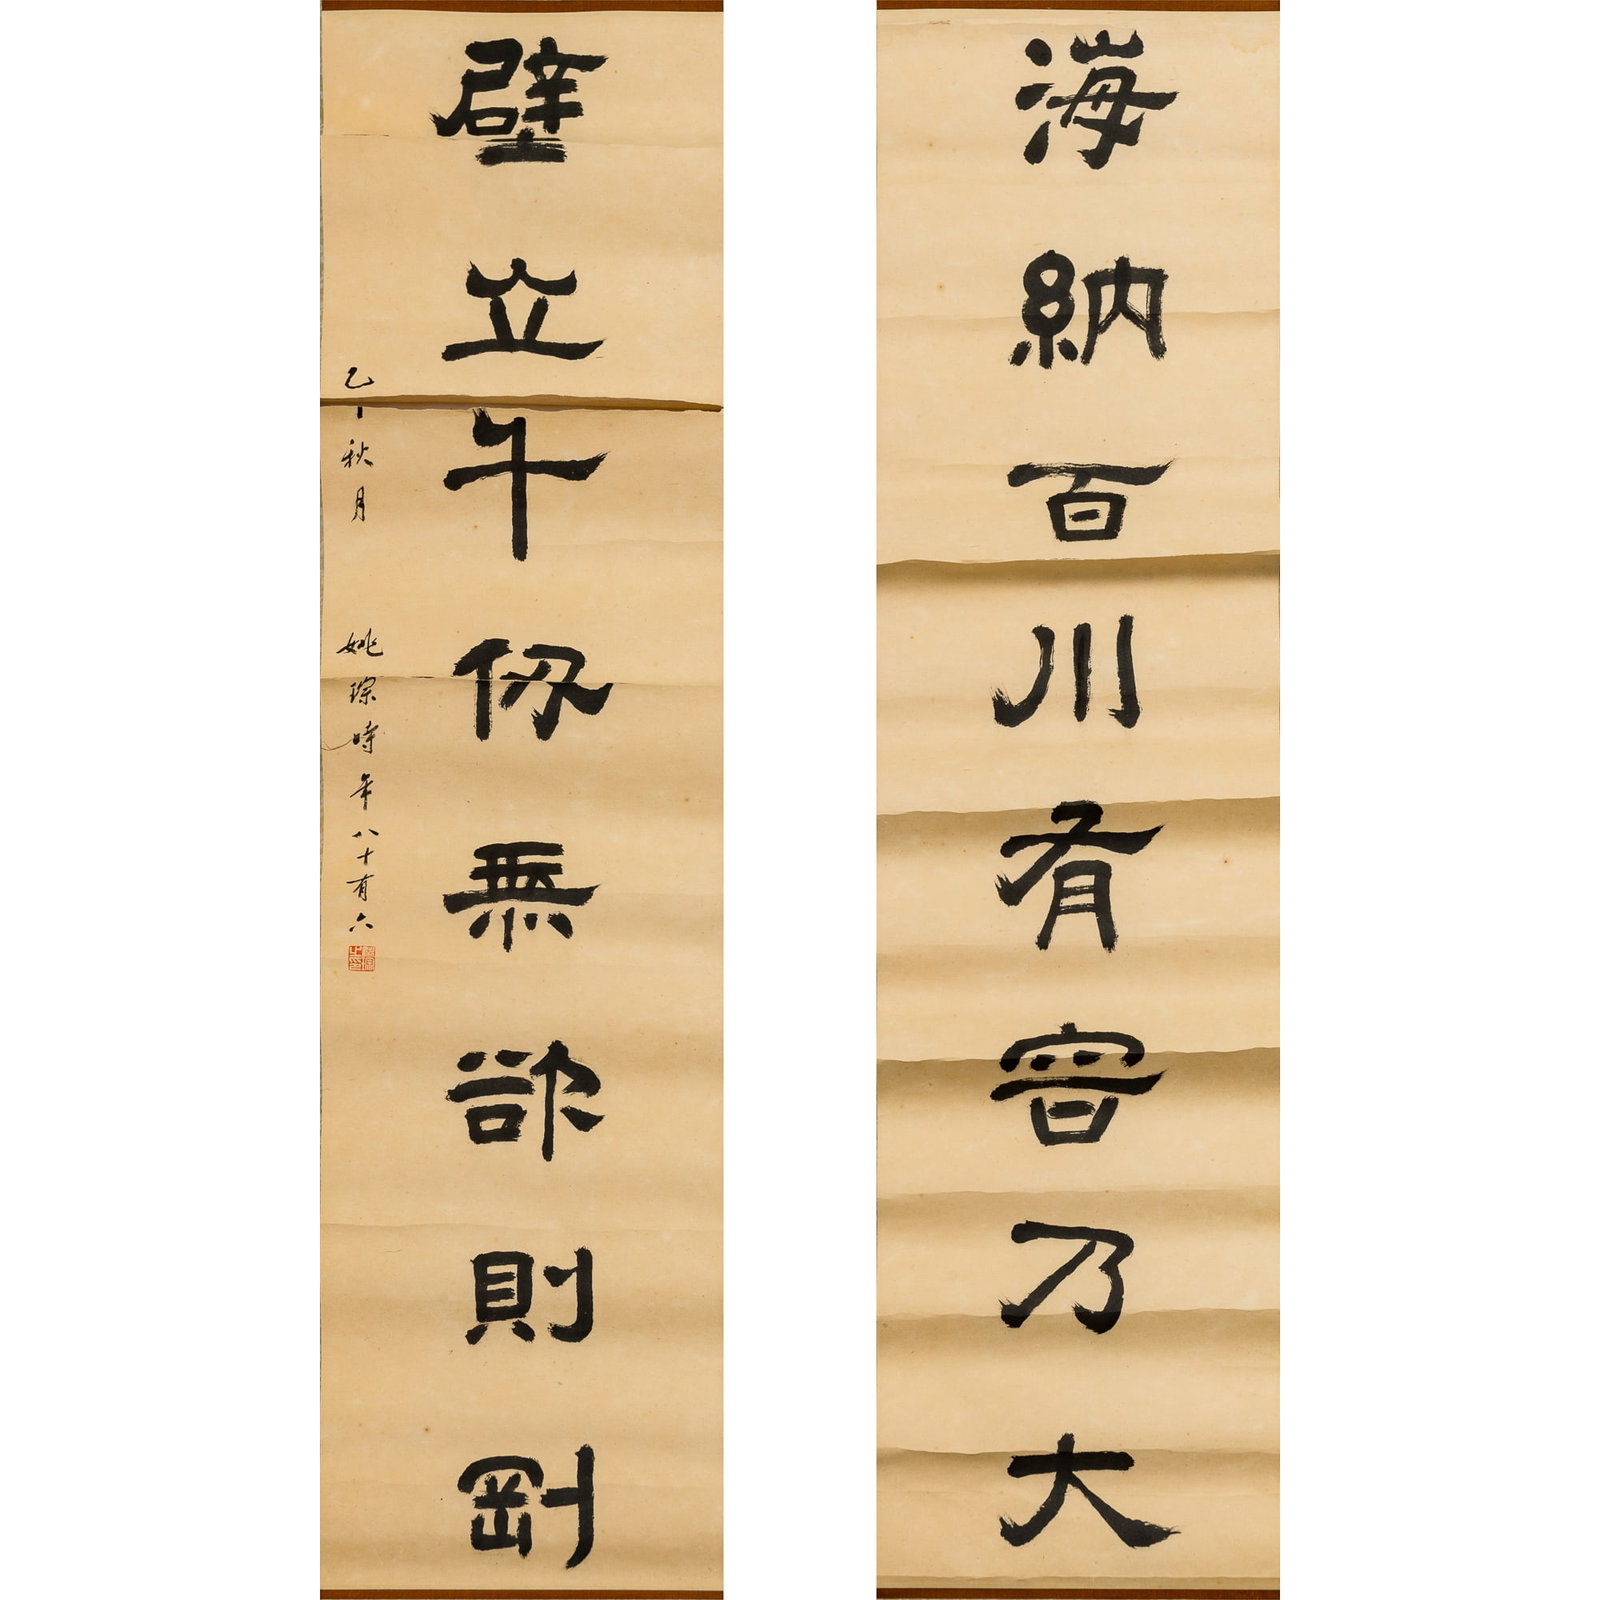 海納百川有容乃大
壁立千仞無欲則剛
秋月
姚琮時年八十有六